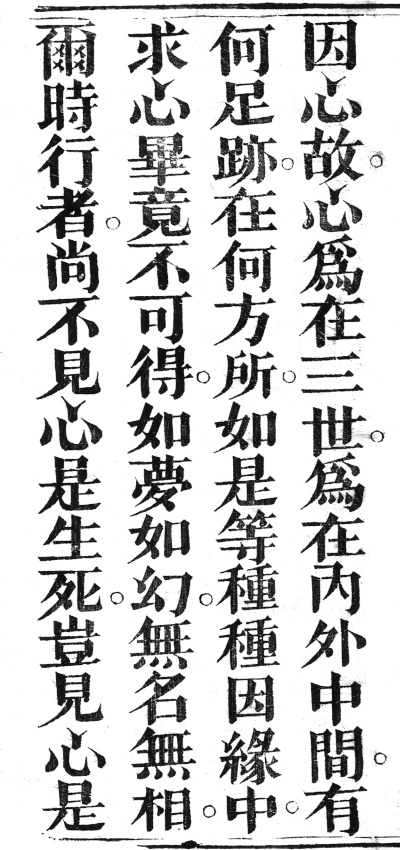 因心故。心爲在三世。爲在內外中間。有
何足跡。在何方所。如是等種種因緣中。
求心畢竟不可得。如夢如幻。無名無相。
爾時行者。尚不見心是生死。豈見心是